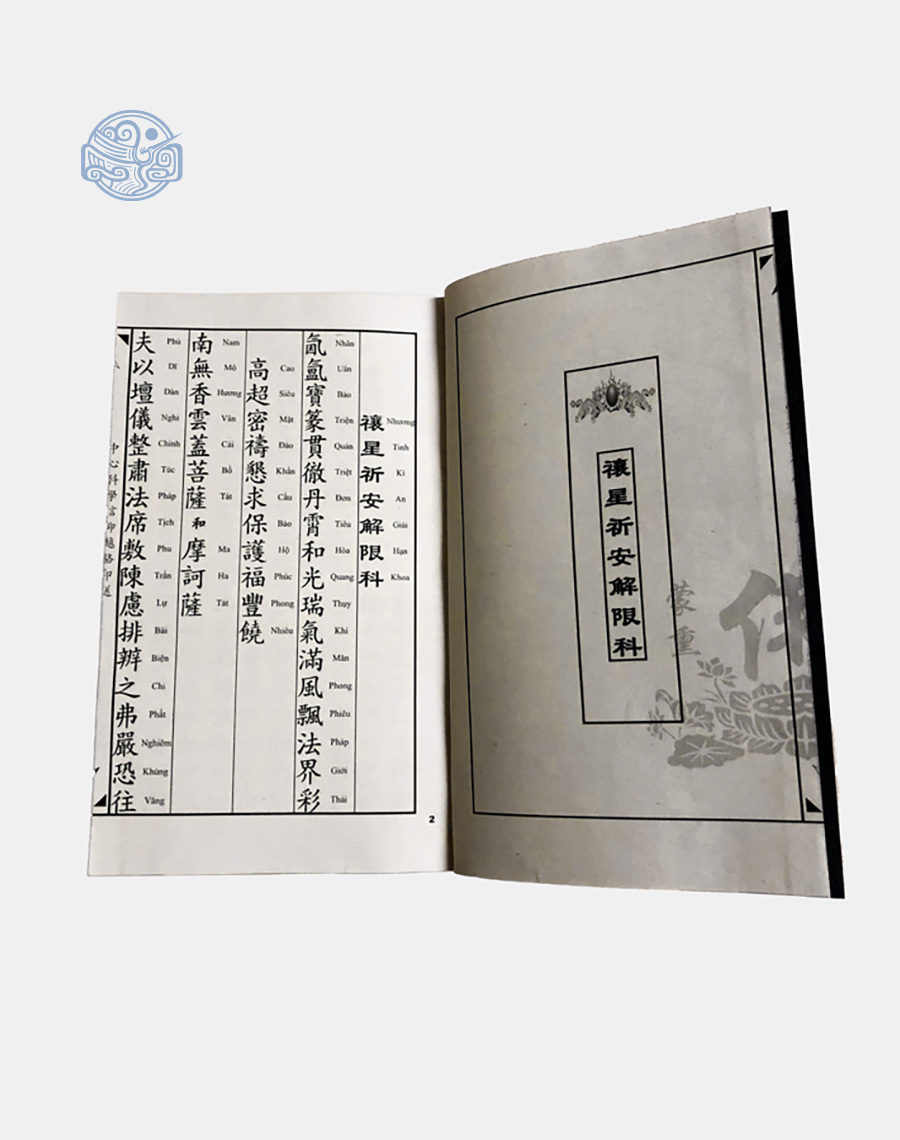 禳星祈安解限科
禳星祈安解限科
Nhương Tinh Kì An Giải Hạn Khoa
氤氳寶篆貫徹丹霄和光瑞氣滿風飄法界彩
Nhân Uân Bảo Triện Quán Triệt Đơn Tiêu Hòa Quang Thụy Khí Mãn Phong Phiêu Pháp Giới Thái
高超密禱懇求保護福豐饒
Cao Siêu Mật Đảo Khẩn Cầu Bảo Hộ Phúc Phong Nhiêu
南無香雲蓋菩薩和摩訶薩
Nam Mô Hương Vân Cái Bồ Tát Ma Ha Tát
夫以壇儀整肅法席敷陳慮排辦之弗嚴恐往
Phù Dĩ Đàn Nghi Chỉnh Túc Pháp Tịch Phu Trần Lự Bài Biện Chi Phất Nghiêm Khủng Vãng
中心科學信仰越駱印送
2